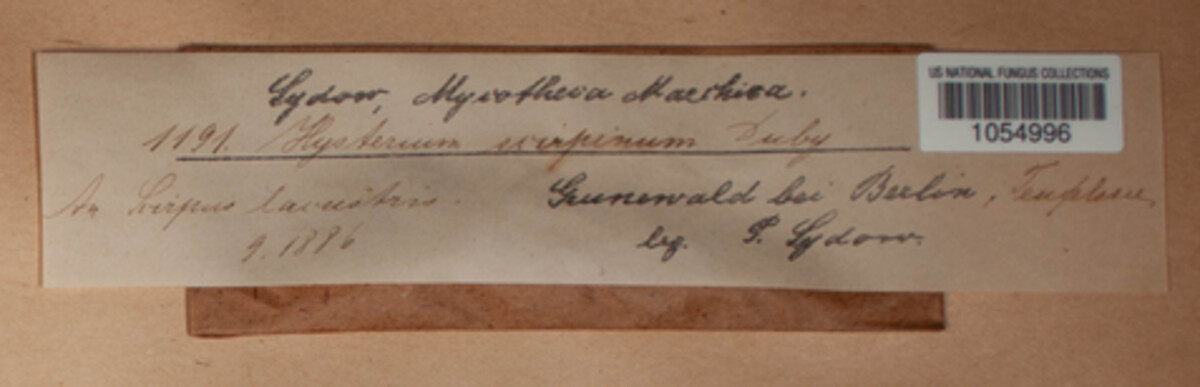 Sydow, Mycotheca Marchica.
1191. Hysterium scirpinum Duby
An Scirpus lacustris. Grunewald bei Berlin,
9.1886 leg. P. Sydow.
US NATIONAL FUNGUS COLLECTIONS
1054996